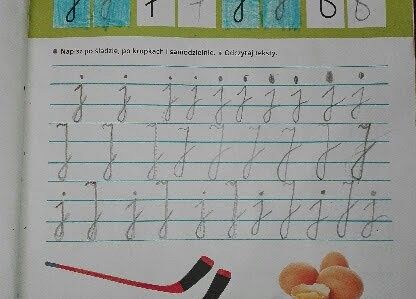 Napisz po śladzie, po kropkach i samodzielnie. • Odczytaj teksty.
j j j j j j j j j j
J J J J J J J J J
j J j J j J j J j J j